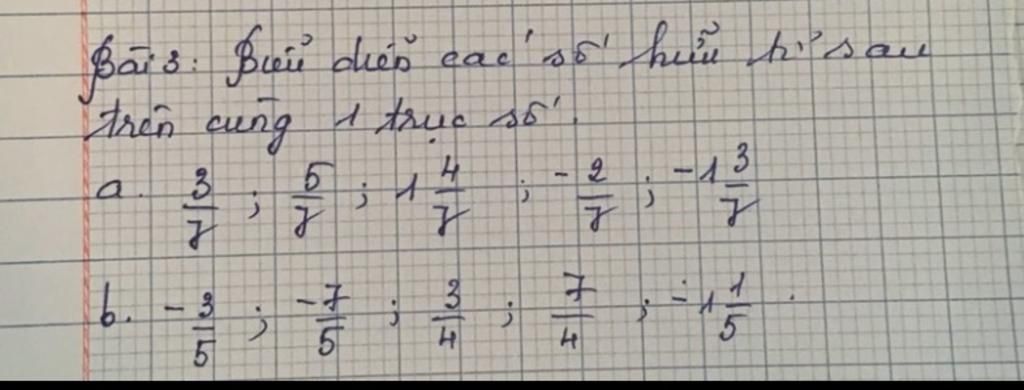 Bài 3: Biểu diễn các số hữu tỉ sau
trên cùng 1 trục số.
a. 3/7 ; 5/7 ; 1 4/7 ; -2/7 ; -1 3/7
b. -3/5 ; -7/5 ; 3/4 ; 7/4 ; -1 1/5.